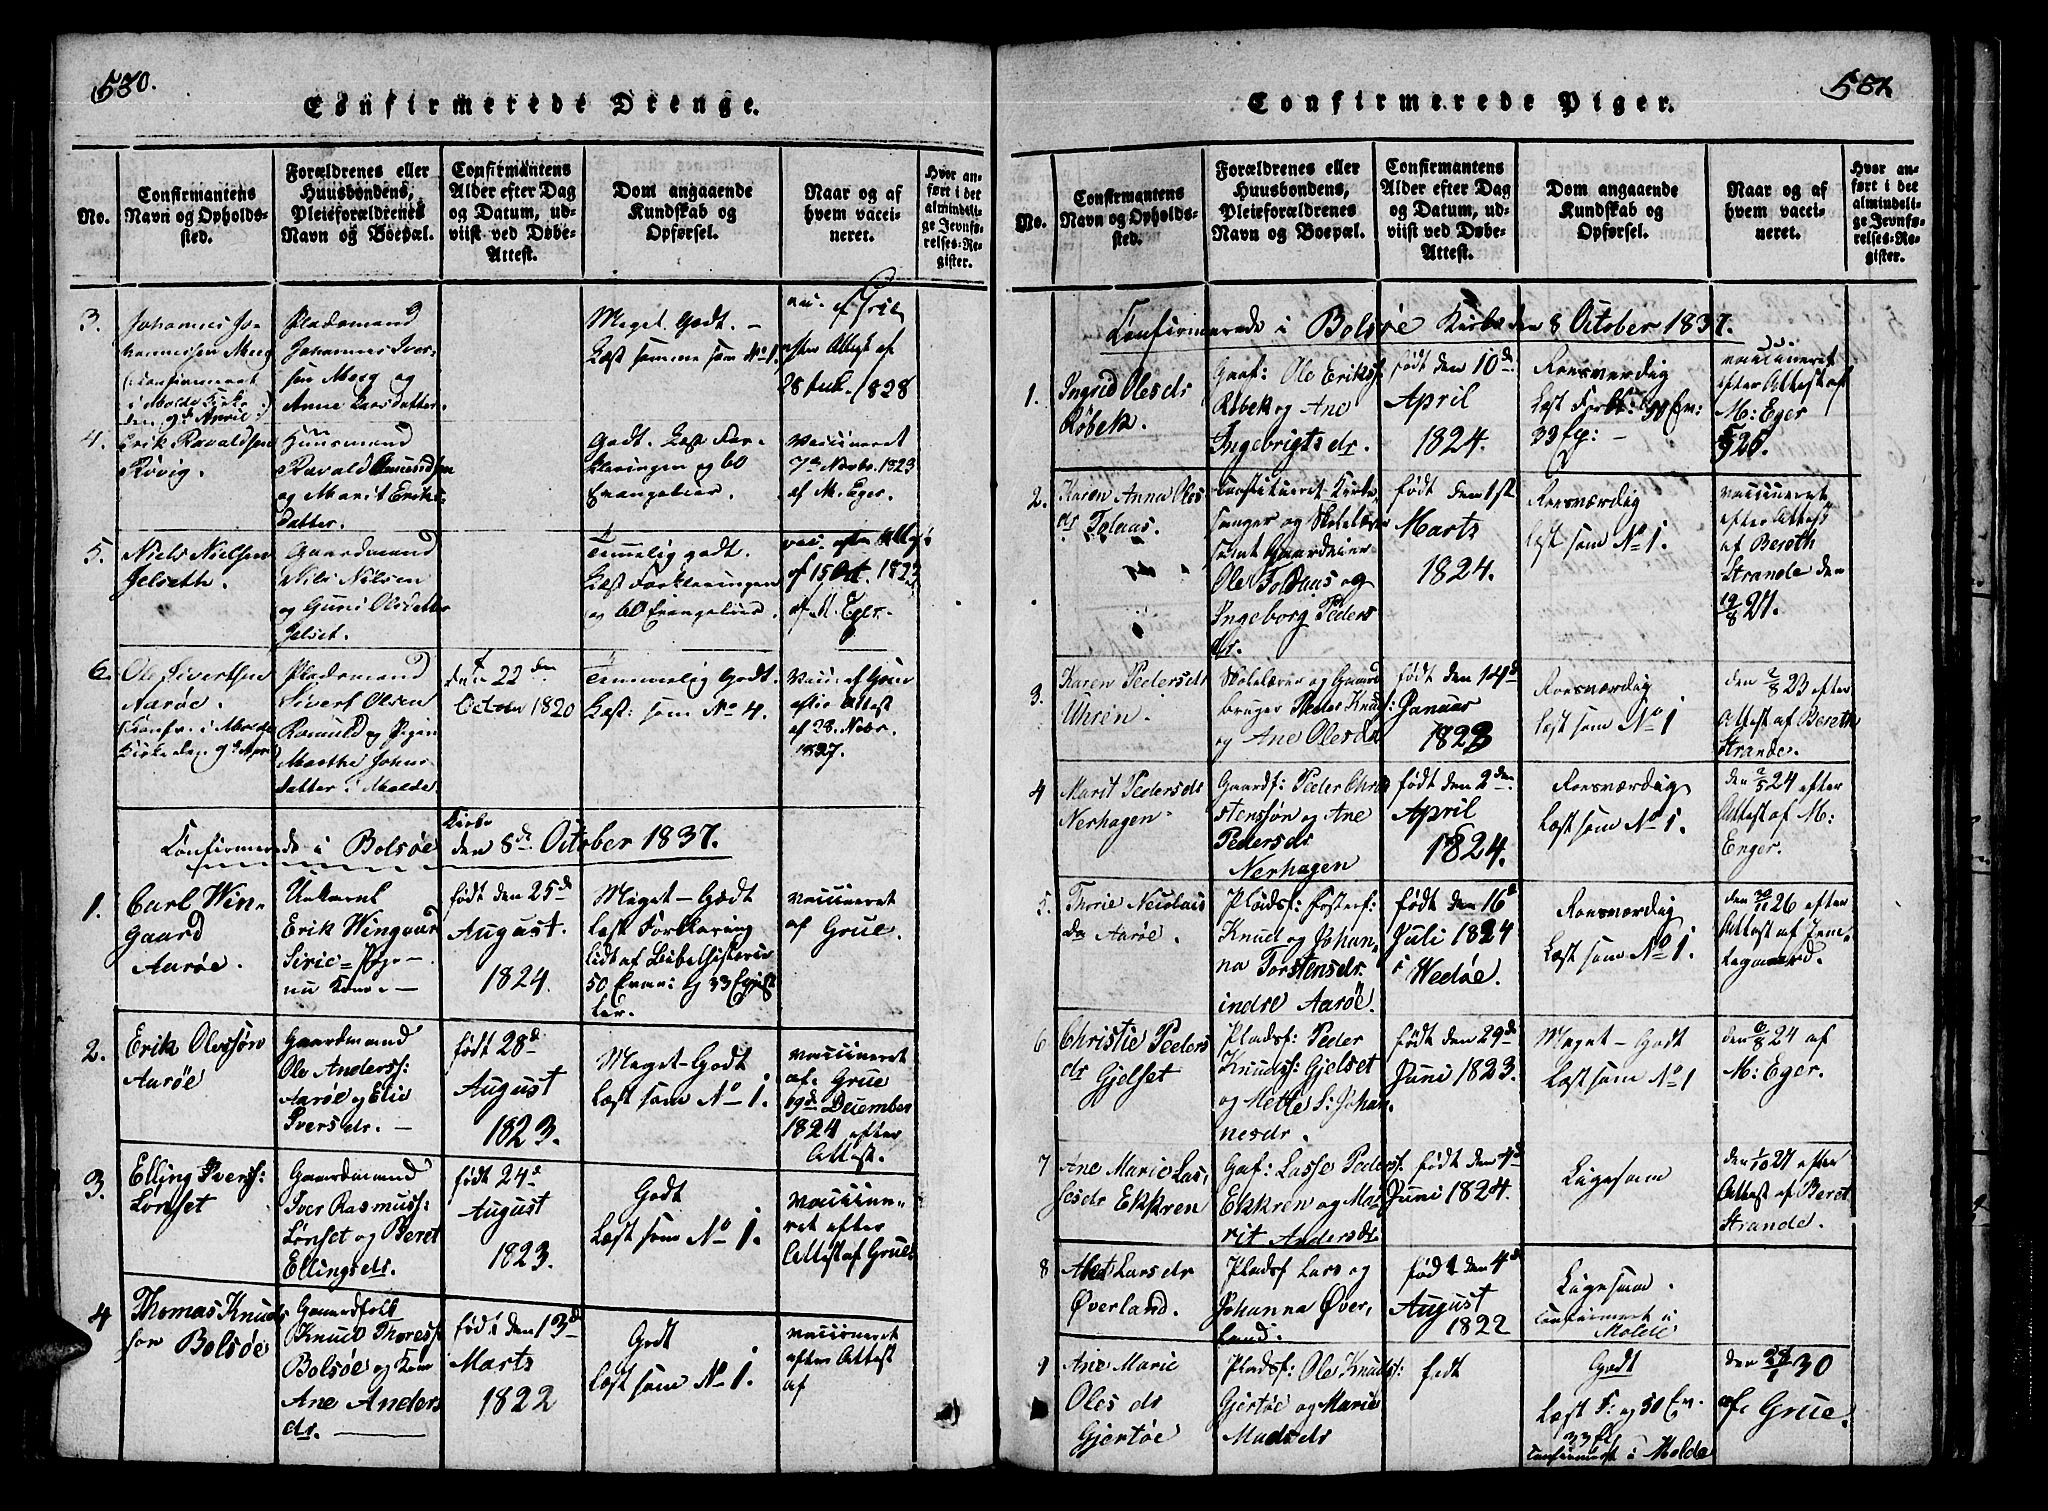 580.
Confirmerede Drenge.
No.
Confirmantens
Navn og Opholds-
sted.
Forældrenes eller
Huusbondens,
Pleieforældrenes
Navn og Boepæl.
Confirmantens
Alder efter Dag
og Datum, ud-
viist ved Døbe-
Attest.
Dom angaaende
Kundskab og
Opførsel.
Naar og af
hvem vacci-
neret.
Hvor an-
ført i det
almindeli-
ge Jevnfø-
relses-Re-
gister.
3.
Johannes Jo-
hannessen Moeg
(Confirmeret
i Molde Kirke
den 9de April
Pladsmand
Johannes Iver-
sen Moeg og
Anne Larsdatter
Meget Godt. –
Læst samme som No 1.
efter Attest af
28 Feb. 1828
4.
Erik Ravaldsen
Røvig.
Huusmand
Ravald Amundsen
og Marit Eriks-
datter.
Godt. Læst For-
klaringen og 60
Evangelier.
Vaccineret
7de Novbr. 1823
af M. Eger.
5.
Niels Nielsen
Jelseth.
Gaardmand
Nils Nilsen
og Guri Olsdatter
Jelset.
Temmelig godt.
Læst Forklaringen
og 60 Evangelier.
vac. efter Attest
af 15 Oct. 1823
af M. Eger.
6.
Ole Sivertsen
Aarøe.
(Confr. i Molde
Kirke den 9de April
Pladsmand
Sivert Olsen
Romuld og Pigen
Marthe Johns-
datter i Molde.
den 22den
October 1820
Temmelig Godt.
Læst: som No 4.
Vacc. af Grue
efter Attest
af 28. Novbr.
1827.
Confirmerede i Bolsøe Kirke den 8de October 1837.
1.
Carl Win-
gaard
Aarøe.
Erik Wingaard
Siric – Pige –
nu Kone. –
født den 25de
August.
1824.
Meget – Godt
læst Forklaring
lidt af Bibelhistorie
50 Evan: og 33 Epist
ler.
vaccineret
af Grue.
2.
Erik Olessøn
Aarøe
Gaardmand
Ole Anderss:
Aarøe og Elie
Iversdr. –
født 28de
August
1823.
Meget – Godt
Læst som No 1.
vaccineret
af Grue
19de December
1824 efter
Attest.
3.
Elling Iverss:
Lønset
Gaardmand
Iver Rasmuss:
Lønset og Beret
Ellingsdr.
født 24de
August
1823.
Godt
Læst som No 1.
Vaccine-
ret efter
Attest af Grue
4
Thomas Knuds
søn Bolsøe
Gaardfolk
Knud Thoress:
Bolsøe og Kone
Ane Anders
dr.
født den 13de
Marts
1822
Godt
Læst som No 1.
vaccineret
efter Attest
af
581.
Confirmerede Piger.
No.
Confirmantens
Navn og Opholds-
sted.
Forældrenes eller
Huusbondens,
Pleieforældrenes
Navn og Boepæl.
Confirmantens
Alder efter Dag
og Datum, ud-
viist ved Døbe-
Attest.
Dom angaaende
Kundskab og
Opførsel.
Naar og af
hvem vacci-
neret.
Hvor an-
ført i det
almindeli-
ge Jevnfø-
relses-Re-
gister.
Confirmerede i Bolsøe Kirke den 8 October 1837.
1.
Ingrid Olesdr
Røbek.
Gaaf: Ole Erikss:
Røbek og Ane
Ingebrigtsdr.
født den 10de
April
1824.
Roesværdig
Læst Forkl: 50 Ev:
33 Ep: –
vaccineret
efter Attest af
M: Eger
2.
Karen Anna Oles
dr Tolaas.
Constitueret Kirke
sanger og Skolelærer
samt Gaardeier
Ole Toldaas og
Ingeborg Peders
dr.
født den 1st
Marts
1824.
Roesværdig
Læst som No 1.
vaccineret
efter Attest
af Bereth
Strande den
19/8 27.
3.
Karen Pedersdr
Uhren.
Skolelærer og Gaard
bruger Peder Knuds:
og Ane Olesdr
født den 14de
Januar
1823
Roesværdig
Læst som No 1
den 2/8 23 efter
Attest af Bereth
Strande.
4
Marit Pedersdr
Nerhagen
Gaardf: Peder Chri
stenssøn og Ane
Pedersdr
Nerhagen
født den 2den
April
1824.
Roesværdig
Læst som No 1.
den 2/5 24 efter
Attest af M:
Enger.
5.
Thorie Nicolais
dr Aarøe.
Pladsf: Fosterf:
Knud og Johan-
na Torstensdr.
indre Aarøe.
født den 16de
Juli 1824
i Wedøe.
Roesværdig
Læst som No 1.
den 20/11 26 efter
Attest af
6
Christie Peders
dr Gjelset
Pladsf: Peder
Knudss: Gjelset
og Mette S: Johan-
nesdr.
født den 29de
Juni 1823.
Meget – Godt
Læst som No 1
den 6/8 24 af
M: Eger.
7
Ane Marie Las,
sesdr Ekkren
Gaf: Lasse Pederss:
Ekkren og Ma-
rit Andersdr
født den 4de
Juni 1824.
Ligesaa
den 1/10 27 efter
Attest af Beret
Strande.
8
Larsdr
Øverland.
Pladsf Lars og
Johanna Øver,
land.
født den 4de
August
1822
Ligesaa.
Confirmeret i
Molde
9
Ane Marie
Olesdr
Gjertøe
Pladsf: Ole Knuds:
Gjertøe og Marie
Madsdr
født
Godt
Læst F: og 50 Ev.
33 Ep.
Confirmeret i Molde
den 24/1 30
af Grue.